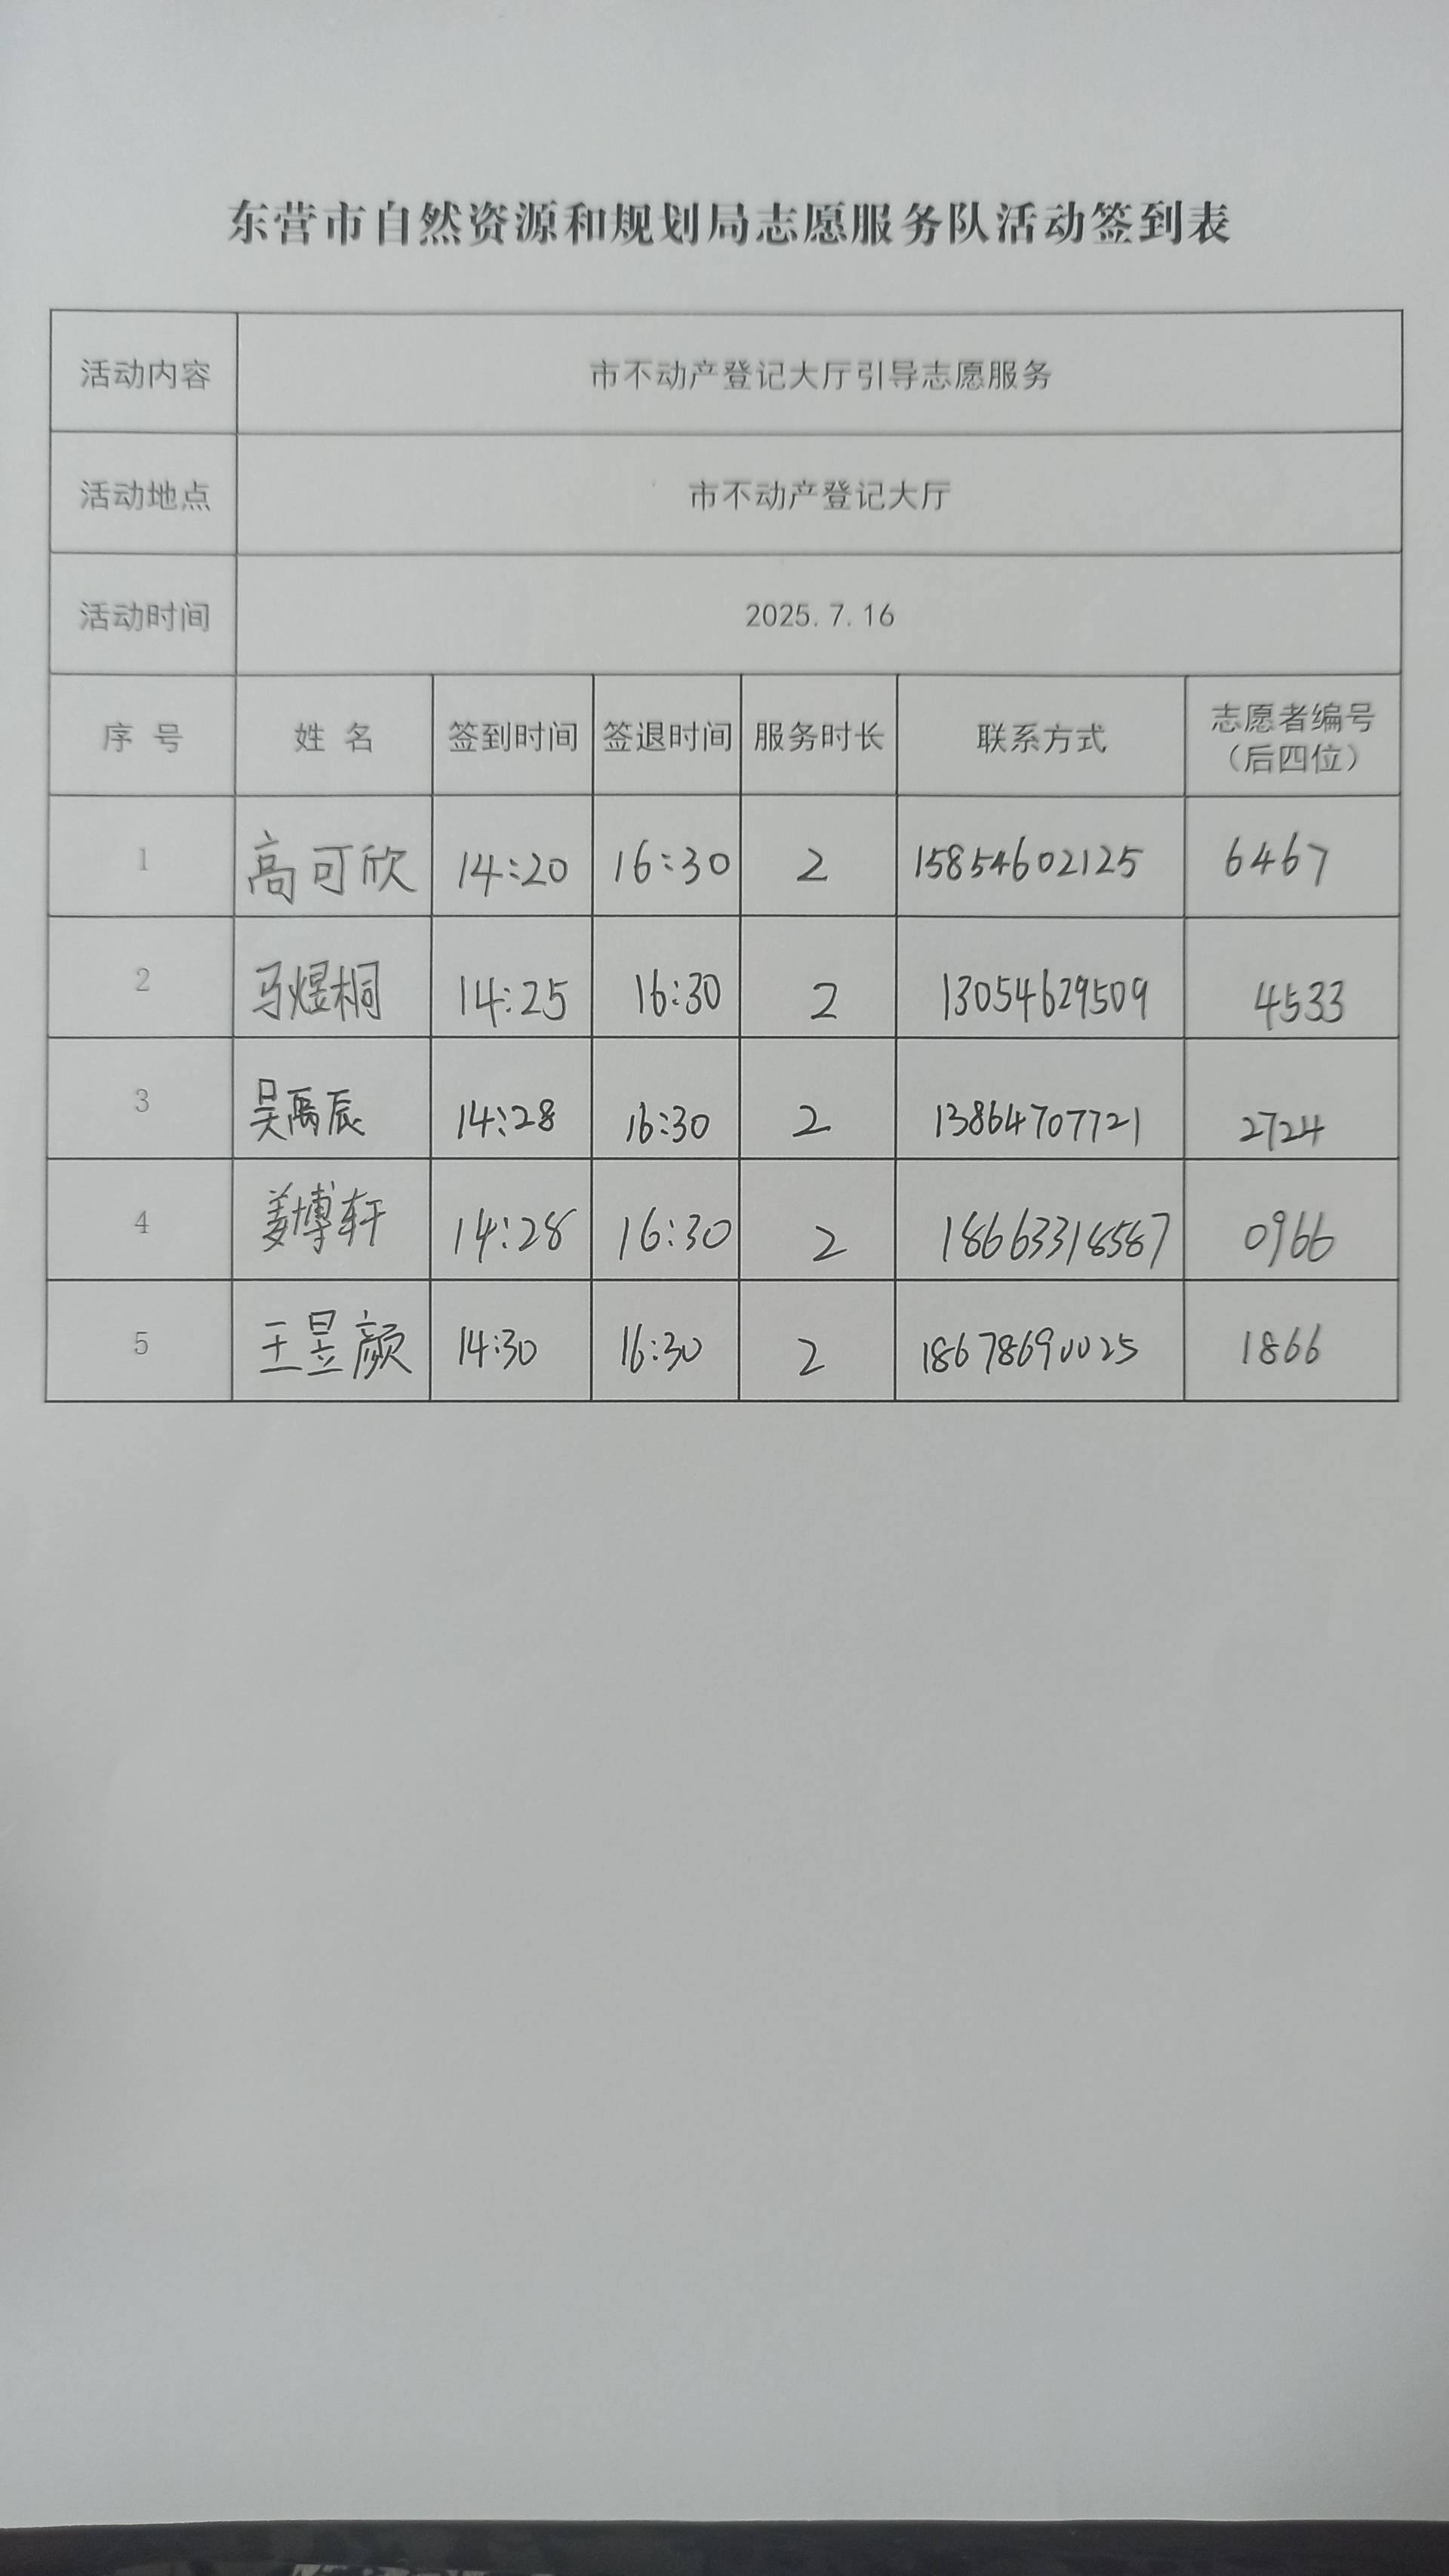 东营市自然资源和规划局志愿服务队活动签到表
活动内容 市不动产登记大厅引导志愿服务
活动地点 市不动产登记大厅
活动时间 2025.7.16
序号 姓名 签到时间 签退时间 服务时长 联系方式 志愿者编号
（后四位）
1 高可欣 14:20 16:30 2 15854602125 6467
2 马煜桐 14:25 16:30 2 13054629509 4533
3 吴禹辰 14:28 16:30 2 13864707721 2724
4 姜博轩 14:28 16:30 2 18663318587 0966
5 王昱颜 14:30 16:30 2 18678690025 1866